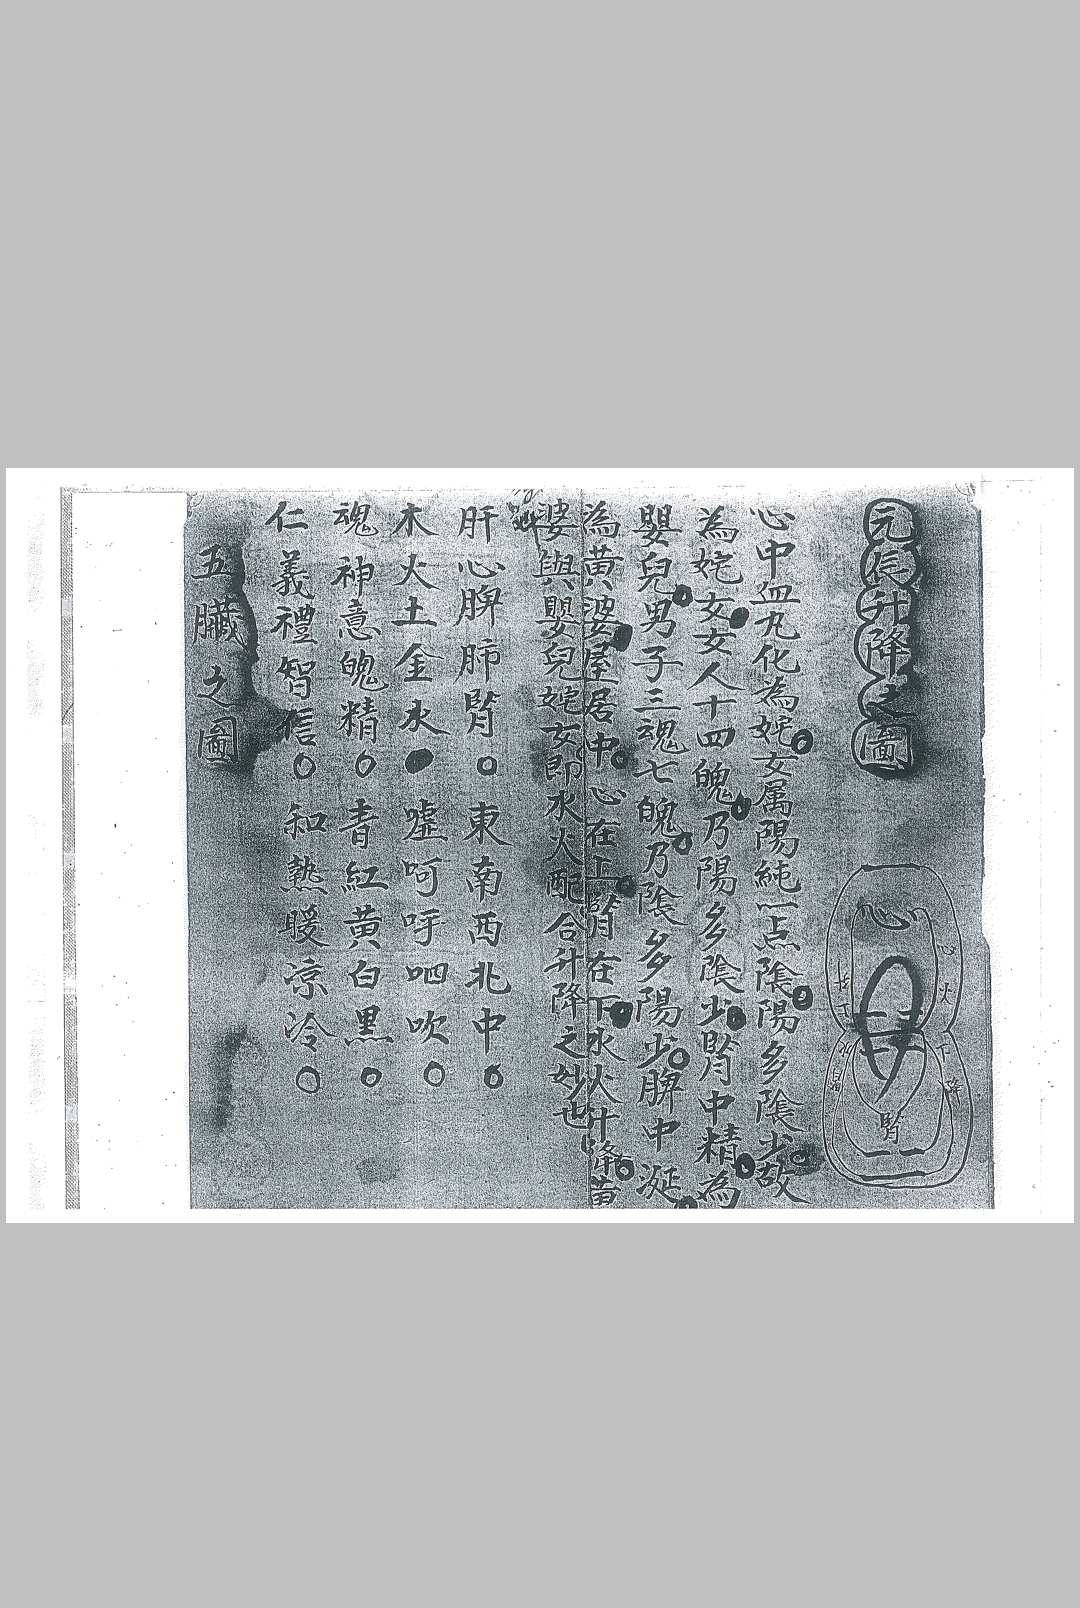 元炁升降之圖
心火
下降
心
腎
心中血丸化為姹女属陽純一点陰陽多陰少故
為姹女女人十四魄乃陽多陰少腎中精為
嬰兒男子三魂七魄乃陰多陽少脾中涎
為黄婆屋居中心在上腎在下水火升降黄
婆與嬰兒姹女即水火配合升降之妙也
肝心脾肺腎○東南西北中○
木火土金水●嘘呵呼呬吹○
魂神意魄精○青紅黄白黑○
仁義禮智信○和熱暖凉冷○
五臟之圖